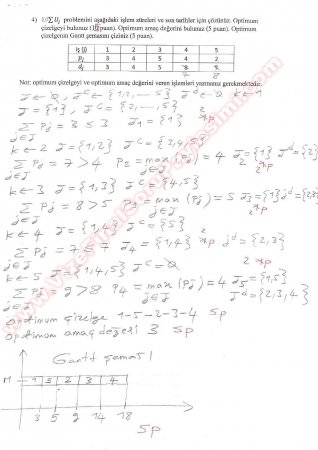 4) 1//ΣUj problemini aşağıdaki işlem süreleri ve son tarihler için çözünüz. Optimum
çizelgeyi bulunuz (10 puan). Optimum amaç değerini bulunuz (5 puan). Optimum
çizelgenin Gantt şemasını çiziniz (5 puan).
iş (j) 1 2 3 4 5
pj 3 4 5 4 2
dj 3 4 5
7 8
Not: optimum çizelgeyi ve optimum amaç değerini veren işlemleri yazmanız gerekmektedir.
J ← ∅, J^C ← {1,2,...,5} J^d ← ∅ k ← 1
J = {1}, J^C = {2,...,5}
Σ Pj = 3 ≤ 3 J1 = {1} 2 sp
j∈J
k ← 2 J = {1,2} J^C = {3,4,5}
Σ Pj = 7 > 4 P2 = max (Pj) = 4 J2 = {1} J^d = {2}
j∈J j∈J 2 sp
k ← 3 J = {1,3} J^C = {4,5}
Σ Pj = 8 > 5 P3 = max (Pj) = 5 J3 = {1} J^d = {2,3}
j∈J j∈J 2 sp
k ← 4 J = {1,4} J^C = {5}
Σ Pj = 7 ≤ 7 J4 = {1,4} 2 sp J^d = {2,3}
j∈J
k ← 5 J = {1,4,5} J^C = ∅
Σ Pj 9 > 8 P4 = max (Pj) = 4 J5 = {1,5}
j∈J j∈J J^d = {2,3,4}
optimum çizelge 1-5-2-3-4 5p
optimum amaç değeri 3 5p
Gantt şeması
M 1 5 2 3 4
3 5 9 14 18
5p